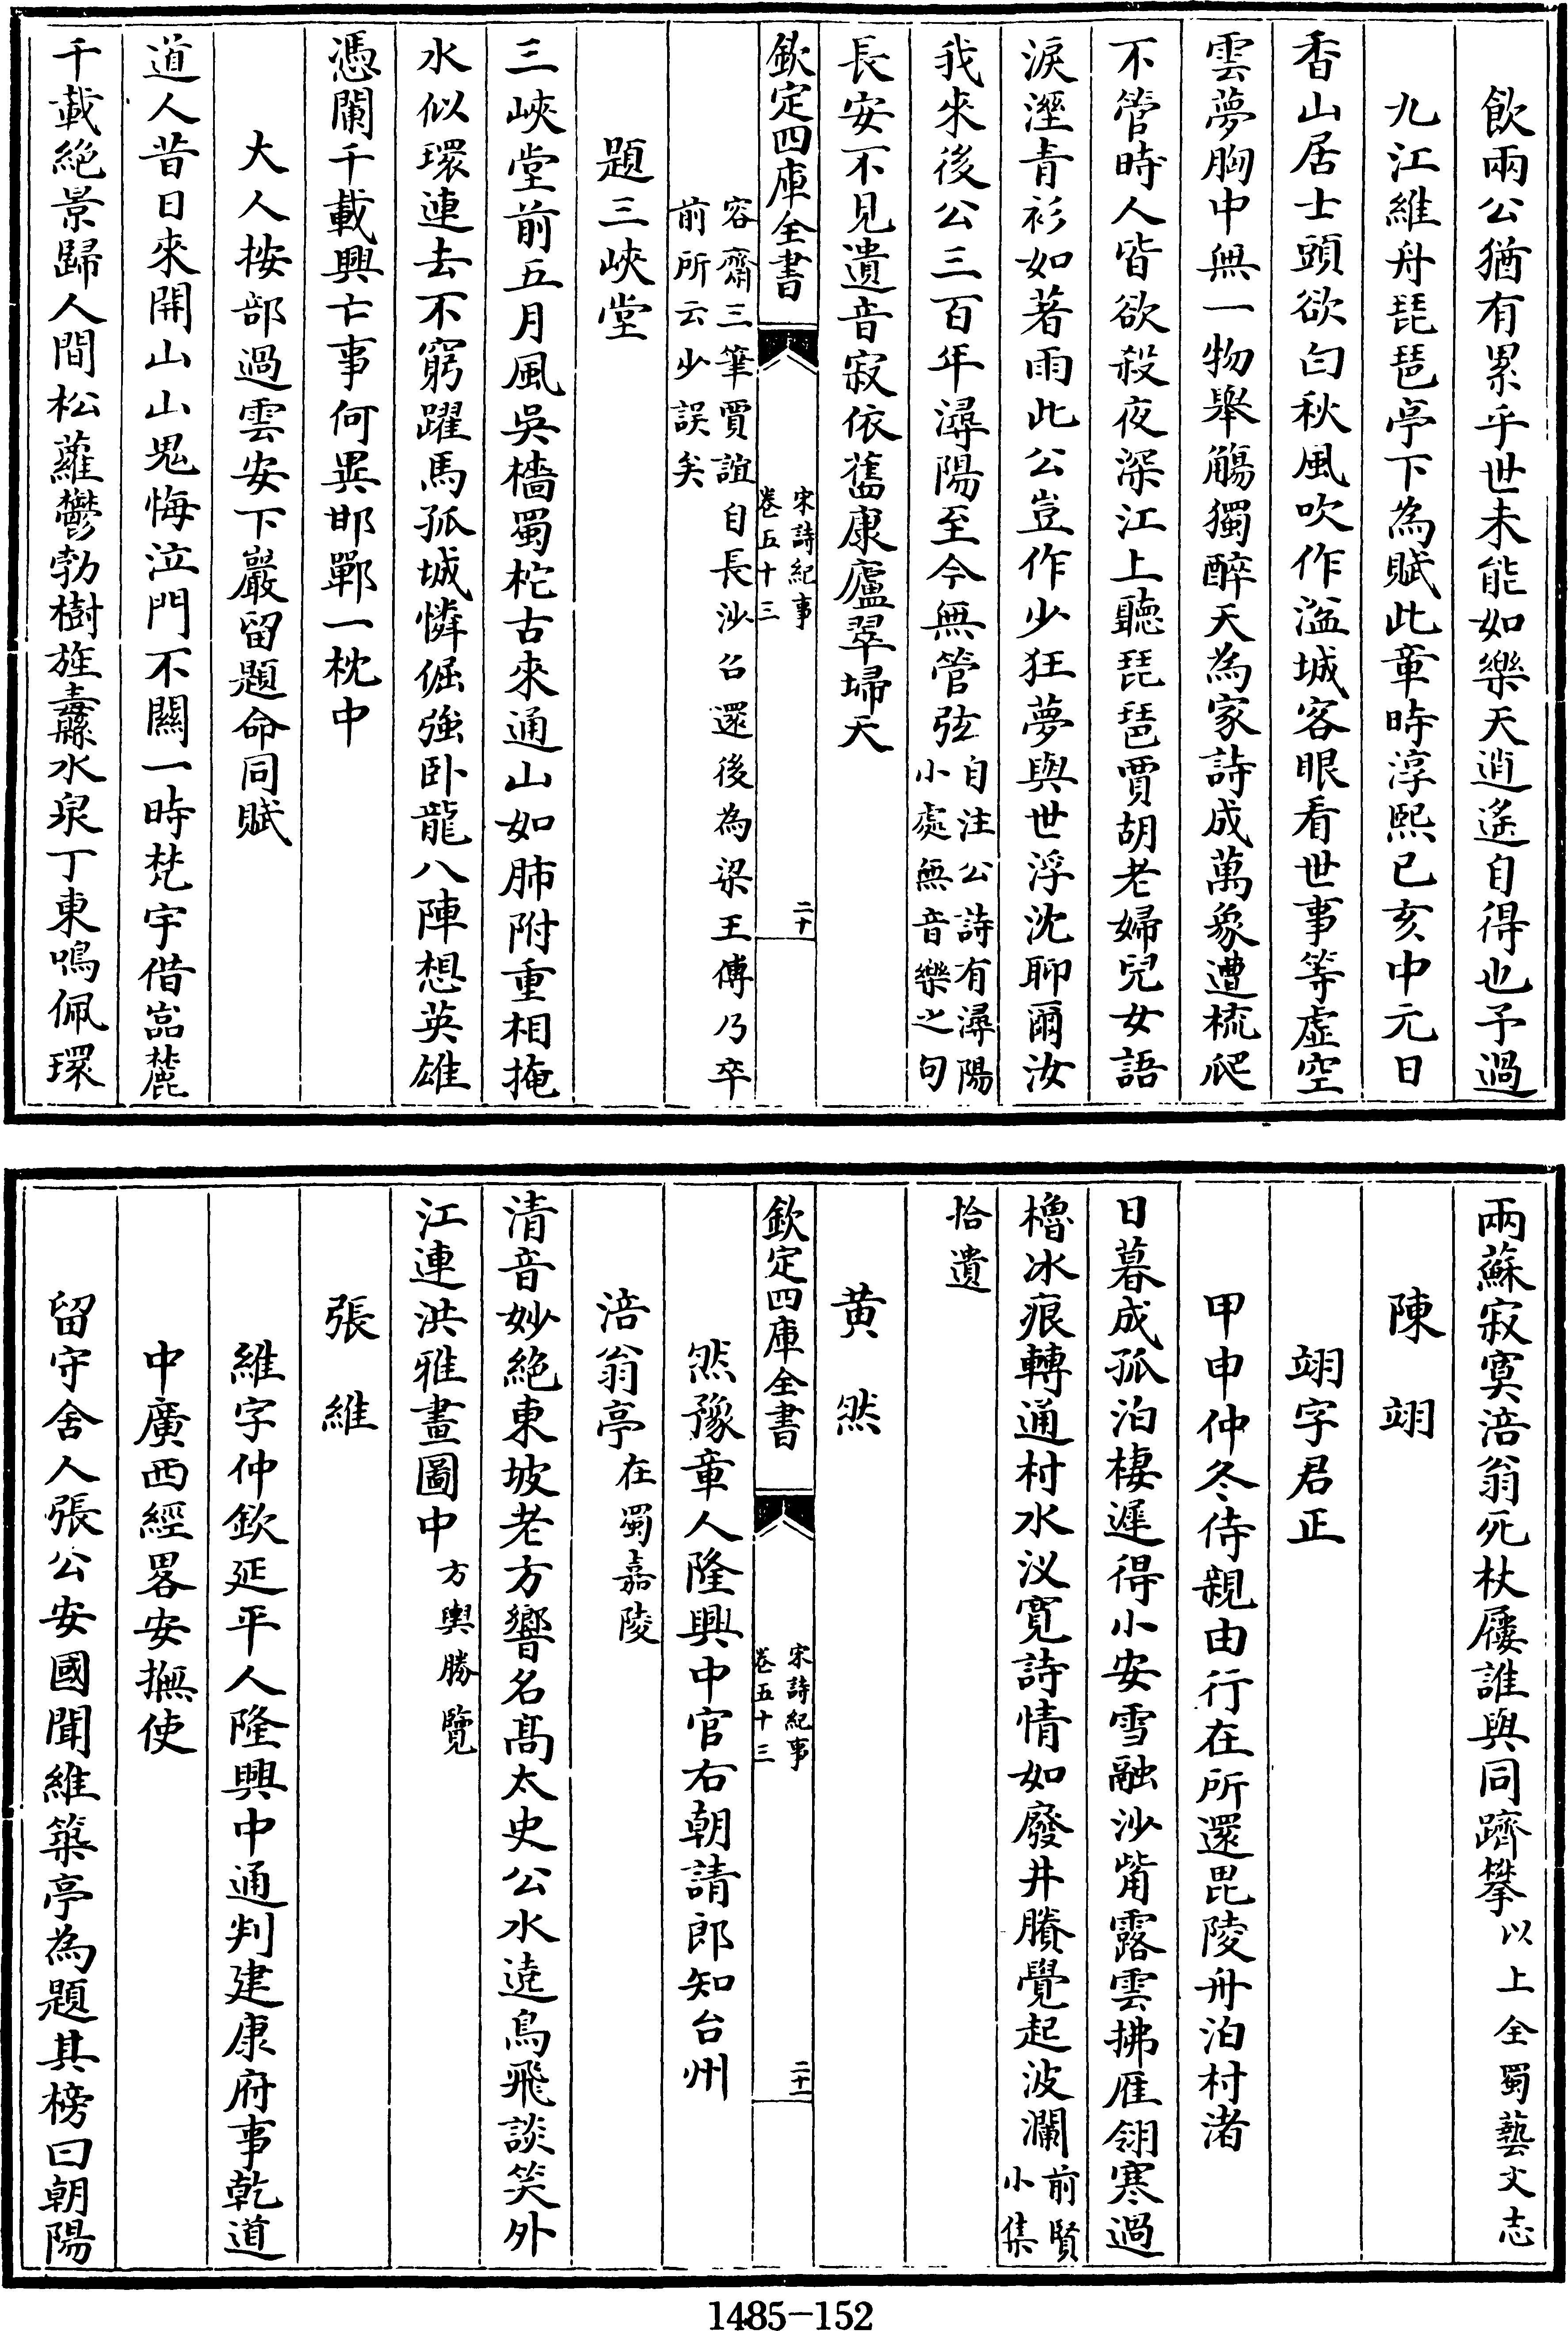 飲兩公猶有累乎世未能如樂天逍遙自得也予過
九江維舟琵琶亭下為賦此章時淳熙已亥中元日
香山居士頭欲白秋風吹作湓城客眼看世事等虛空
雲夢胸中無一物舉觴獨醉天為家詩成萬象遭梳爬
不管時人皆欲殺夜深江上聽琵琶賈胡老婦兒女語
淚溼青衫如著雨此公豈作少狂夢與世浮沈聊爾汝
我來後公三百年潯陽至今無管弦自注公詩有潯陽
小處無音樂之句
長安不見遺音寂依舊康廬翠埽天
欽定四庫全書
宋詩紀事
卷五十三
二十
容齋三筆賈誼自長沙召還後為梁王傅乃卒
前所云少誤矣
題三峽堂
三峽堂前五月風吳檣蜀柁古來通山如肺附重相掩
水似環連去不窮躍馬孤城憐倔強卧龍八陣想英雄
憑闌千載興亡事何異邯鄲一枕中
大人按部過雲安下巖留題命同賦
道人昔日來開山山鬼悔泣門不關一時梵宇借嵓麓
千載絕景歸人間松蘿鬱勃樹旌纛水泉丁東鳴佩環
兩蘇寂寞涪翁死杖屨誰與同躋攀以上全蜀藝文志
陳翊
翊字君正
甲申仲冬侍親由行在所還毘陵舟泊村渚
日暮成孤泊棲遲得小安雪融沙觜露雲拂雁翎寒過
櫓冰痕轉通村水汊寬詩情如廢井賸覺起波瀾前賢
小集
拾遺
黄然
欽定四庫全書
宋詩紀事
卷五十三
二十一
然豫章人隆興中官右朝請郎知台州
涪翁亭在蜀嘉陵
清音妙絕東坡老方響名高太史公水遶鳥飛談笑外
江連洪雅畫圖中方輿勝覽
張維
維字仲欽延平人隆興中通判建康府事乾道
中廣西經畧安撫使
留守舍人張公安國聞維築亭為題其榜曰朝陽
1485-152